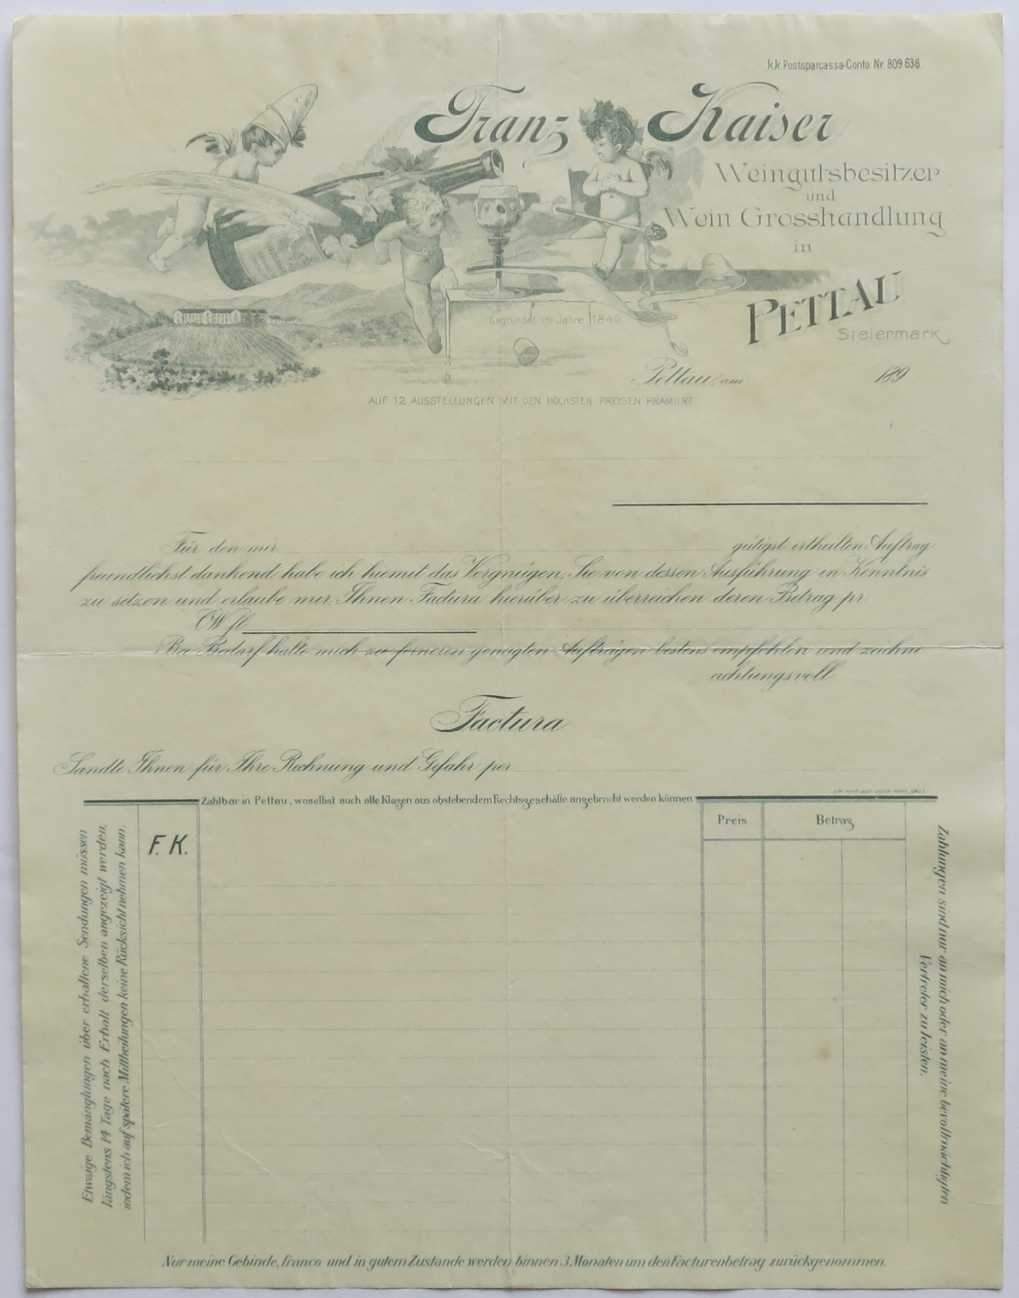 k.k. Postsparcassa-Conto Nr. 809.638
Franz Kaiser
Weingutsbesitzer
und
Wein Grosshandlung
in
PETTAU
Steiermark
Gegründet im Jahre 1849
Pettau am 189
AUF 12 AUSSTELLUNGEN MIT DEN HÖCHSTEN PREISEN PRÄMIIRT
Für den mir gütigst ertheilten Auftrag
freundlichst dankend habe ich hiemit das Vergnügen, Sie von dessen Ausführung in Kenntnis
zu setzen und erlaube mir Ihnen Factura hierüber zu überreichen deren Betrag pr
ÖW fl
Bei Bedarf halte mich zu ferneren geneigten Aufträgen bestens empfohlen und zeichne
achtungsvoll
Factura
Sandte Ihnen für Ihre Rechnung und Gefahr per
Zahlbar in Pettau, woselbst auch alle Klagen aus obstehendem Rechtsgeschäfte angebracht werden können
Preis Betrag
F. K.
Etwaige Bemänglungen über erhaltene Sendungen müssen
längstens 14 Tage nach Erhalt derselben angezeigt werden,
indem ich auf spätere Mittheilungen keine Rücksicht nehmen kann.
Zahlungen sind nur an mich oder an meine bevollmächtigten
Vertreter zu leisten.
Nur meine Gebinde, franco und in gutem Zustande werden binnen 3 Monaten um den Facturenbetrag zurückgenommen.